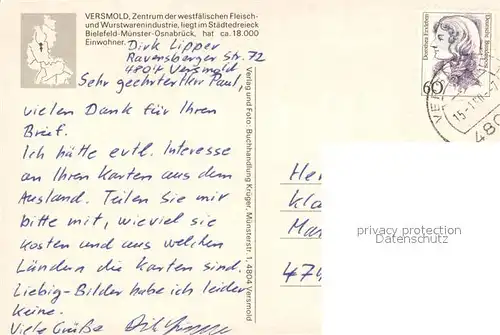 VERSMOLD, Zentrum der westfälischen Fleisch-
und Wurstwarenindustrie, liegt im Städtedreieck
Bielefeld-Münster-Osnabrück, hat ca. 18.000
Einwohner.
Dirk Lipper
Ravensberger Str. 72
4804 Versmold
Sehr geehrter Herr Paul,
vielen Dank für Ihren
Brief.
Ich hätte evtl. Interesse
an Ihren Karten aus dem
Ausland. Teilen Sie mir
bitte mit, wieviel sie
kosten und aus welchen
Ländern die Karten sind.
Liebig-Bilder habe ich leider
keine.
Viele Grüße
Verlag und Foto: Buchhandlung Krüger, Münsterstr. 1, 4804 Versmold
Dorothea Erxleben
Deutsche Bundespost
60
480
Her
Kla
Mar
474
privacy protection
DARPABEX GmbH